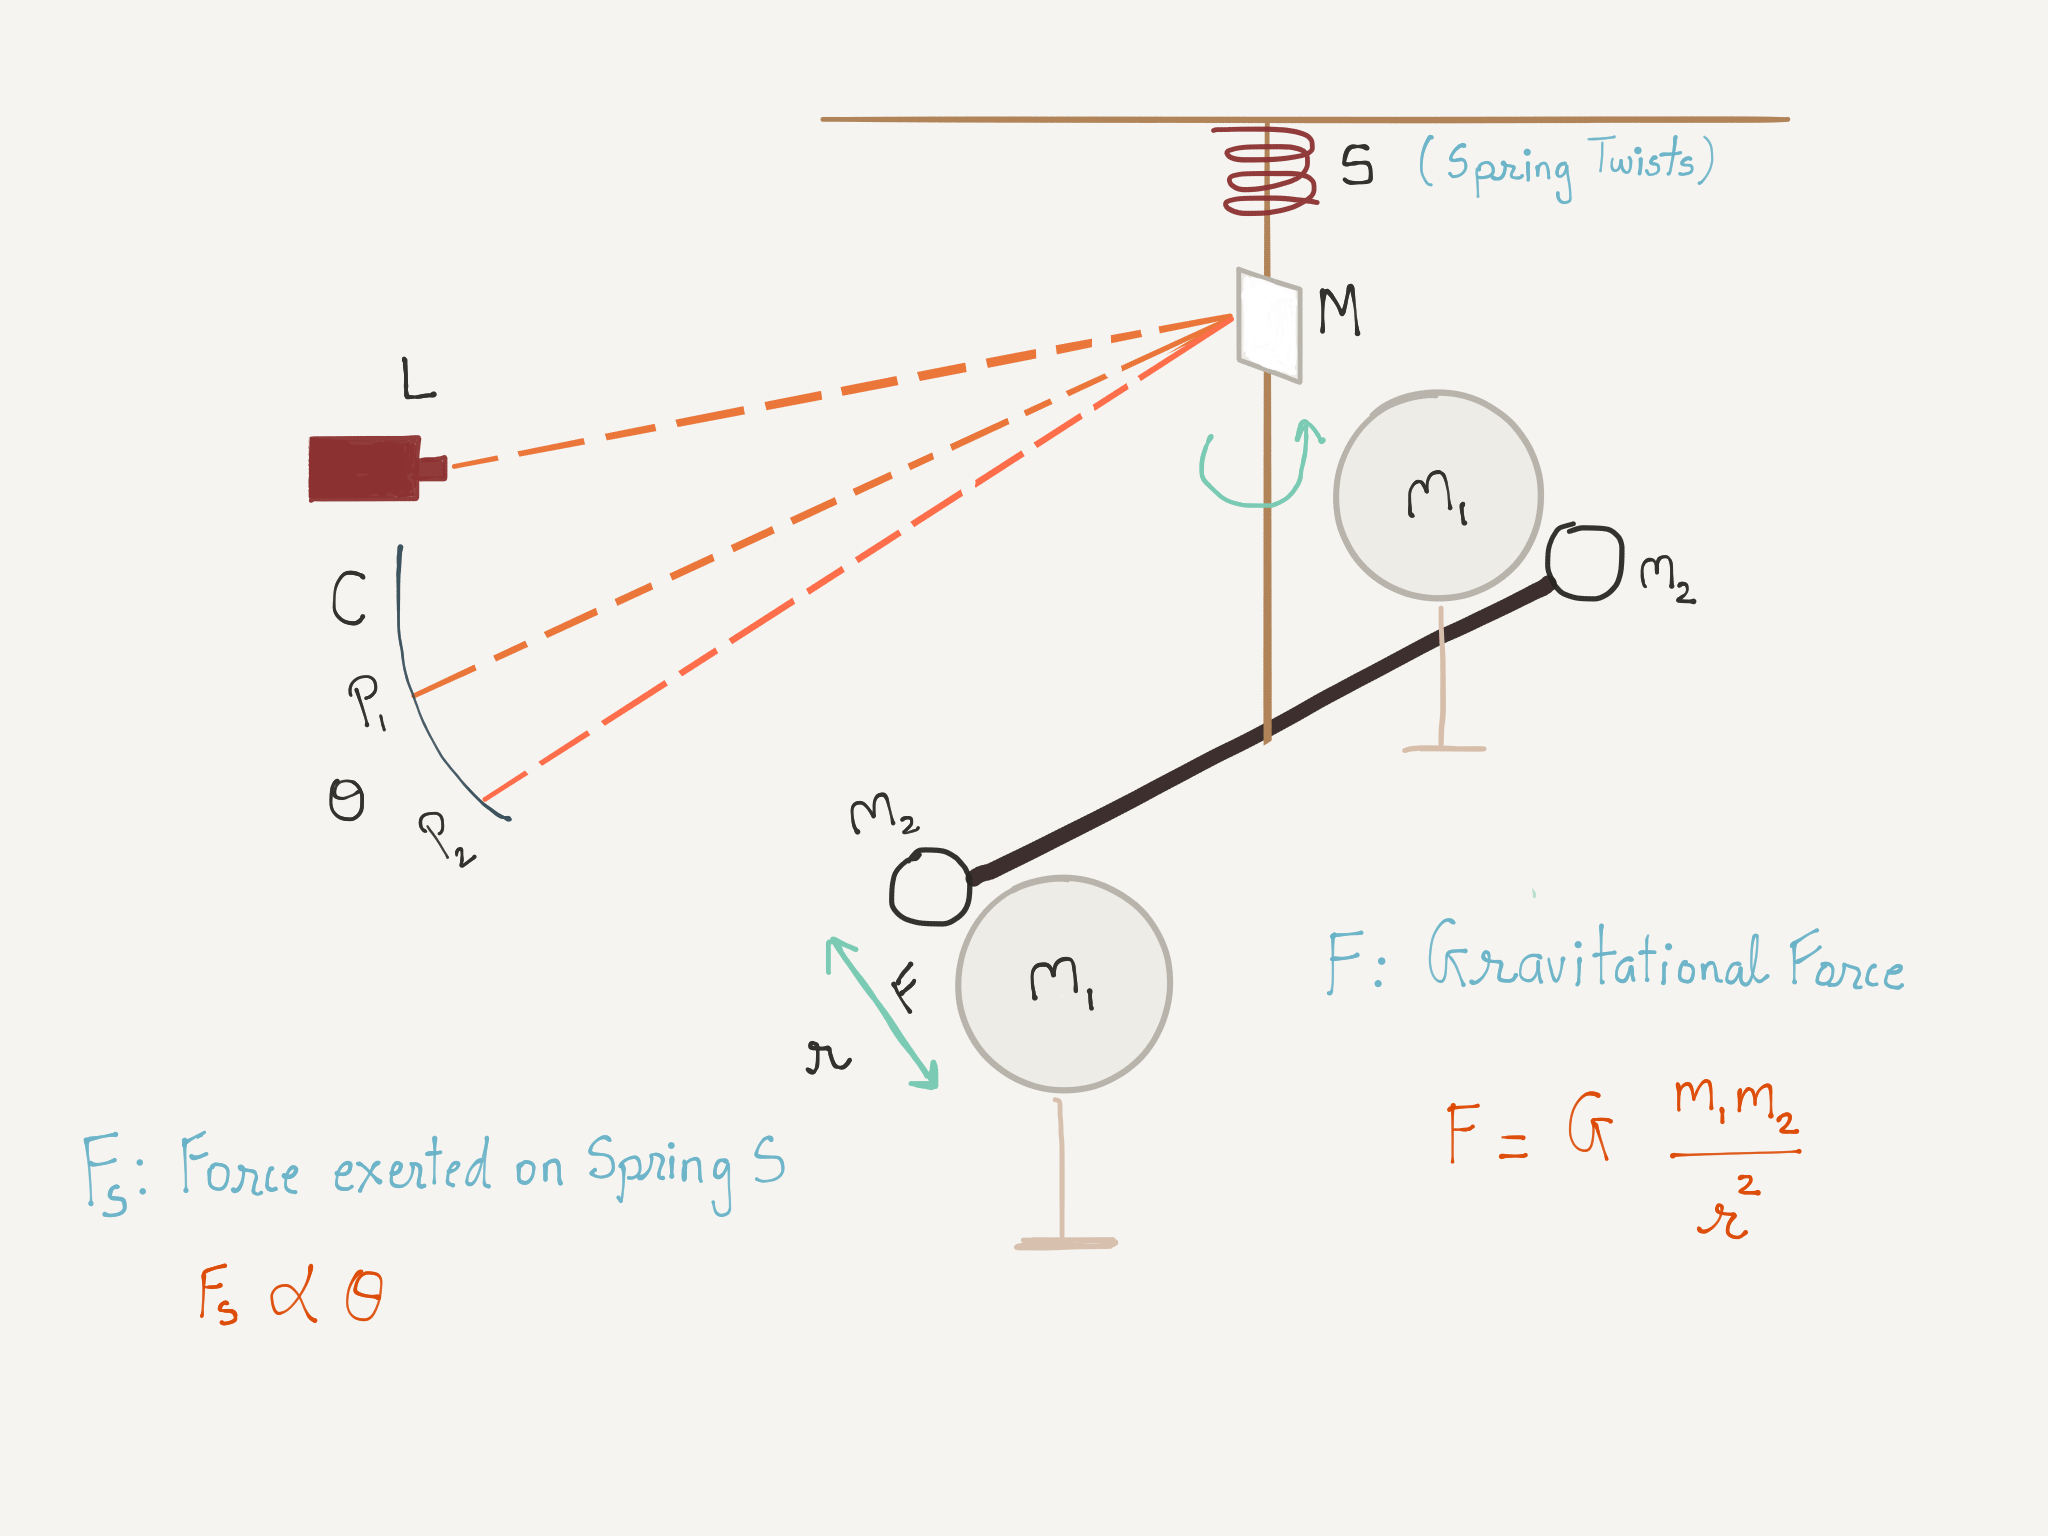 S (Spring Twists)
M
L
m₁
C
m₂
P₁
θ
P₂
m₂
F
m₁
r
F: Gravitational Force
F = G m₁m₂ / r²
Fₛ: Force exerted on Spring S
Fₛ ∝ θ